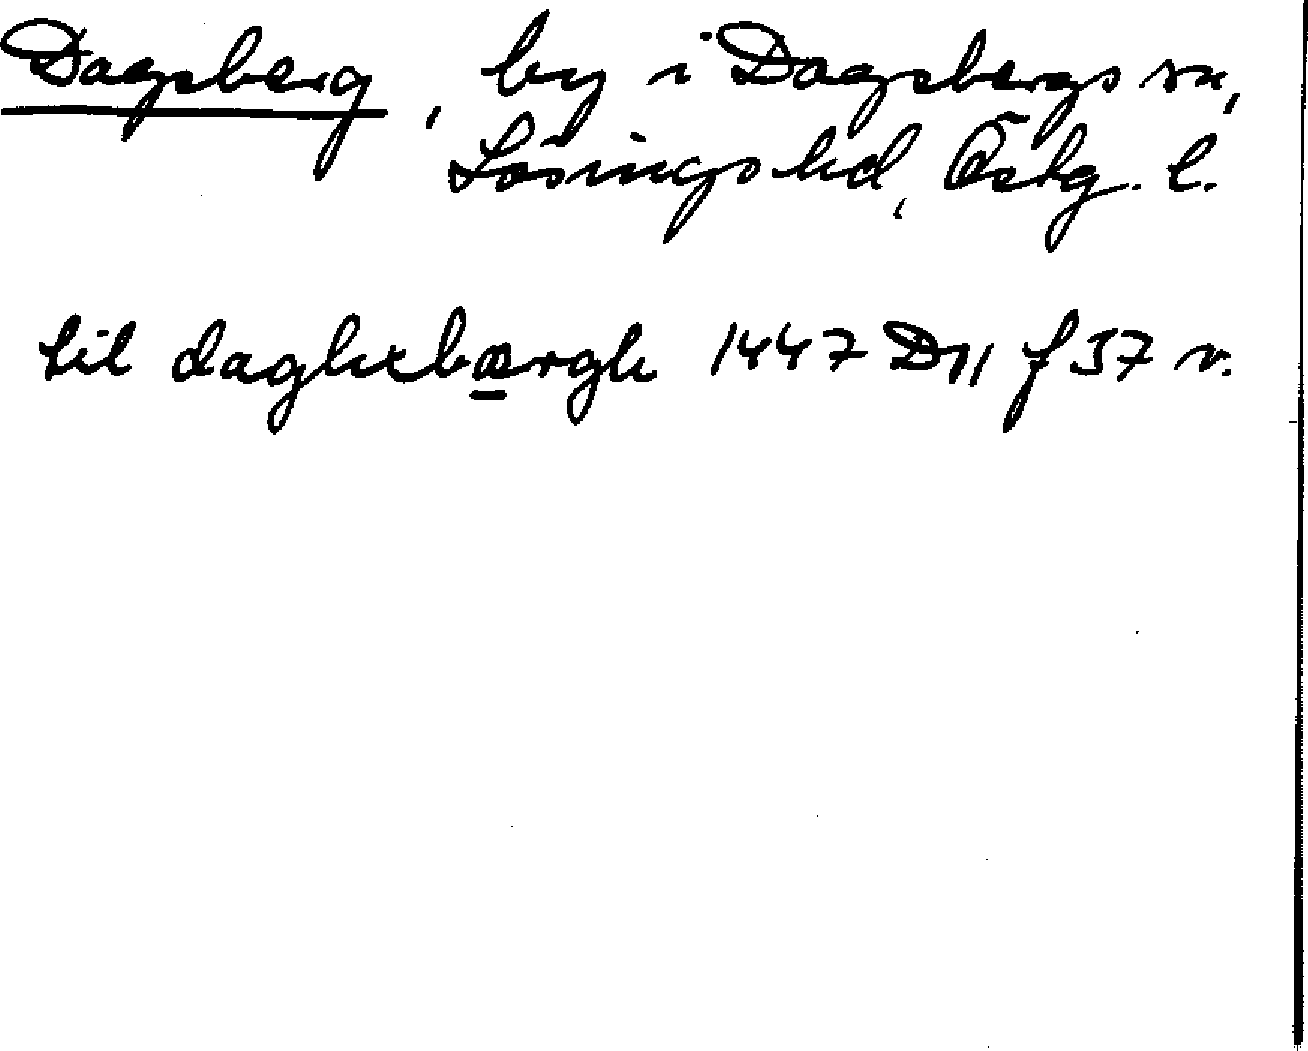 Dagsberg, by i Dagsbergs sn,
Lösings hd, Östg. l.
til daghxbærgh 1447 D11 f 37 v.